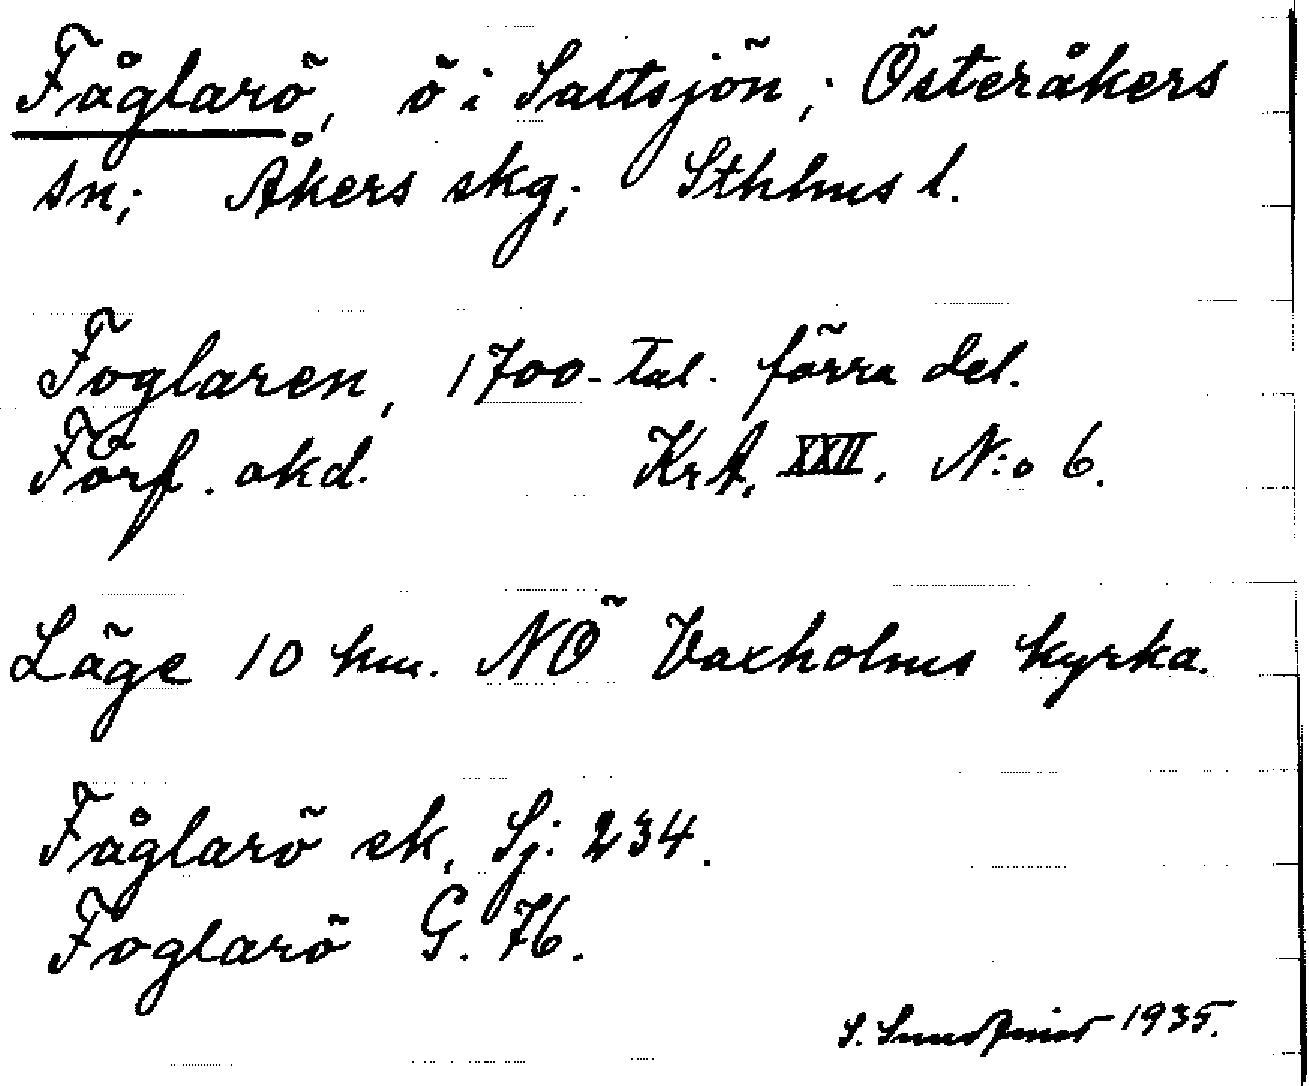 Fåglarö, ö i Saltsjön; Österåkers
sn; Åkers skg; Sthlms l.
Foglaren, 1700-tal. förra del.
Förf. okd. KrA, XXII. N:o 6.
Läge 10 km. NÖ Vaxholms kyrka.
Fåglarö ek. Sj: 234.
Foglarö G. 76.
S. 1935.